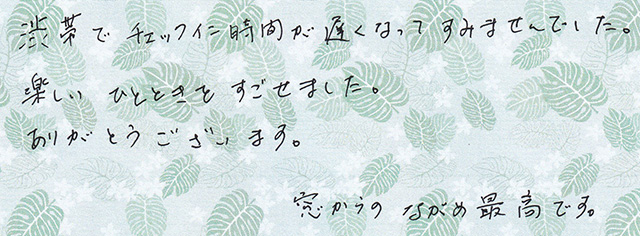 渋帯でチェックイン時間が遅くなってすみませんでした。
楽しいひとときをすごせました。
ありがとうございます。
窓からのながめ最高です。